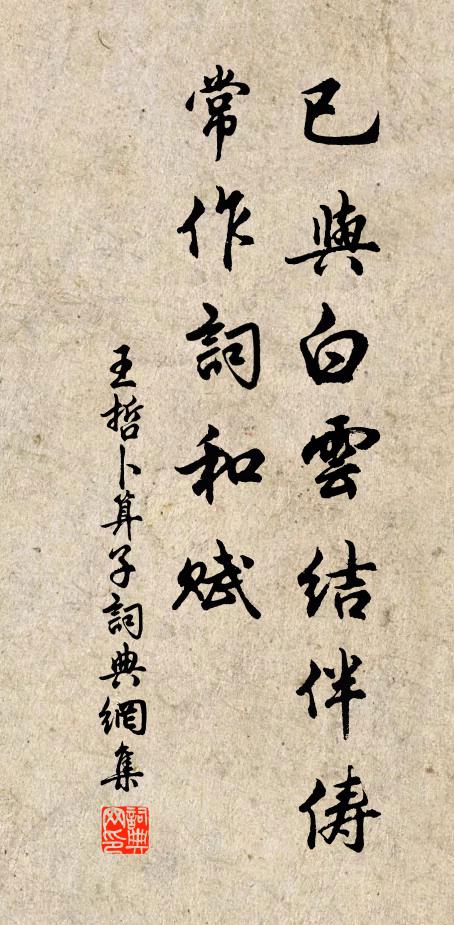 已與白雲結伴儔
常作詞和賦
王哲卜算子詞典網集
詞典网印